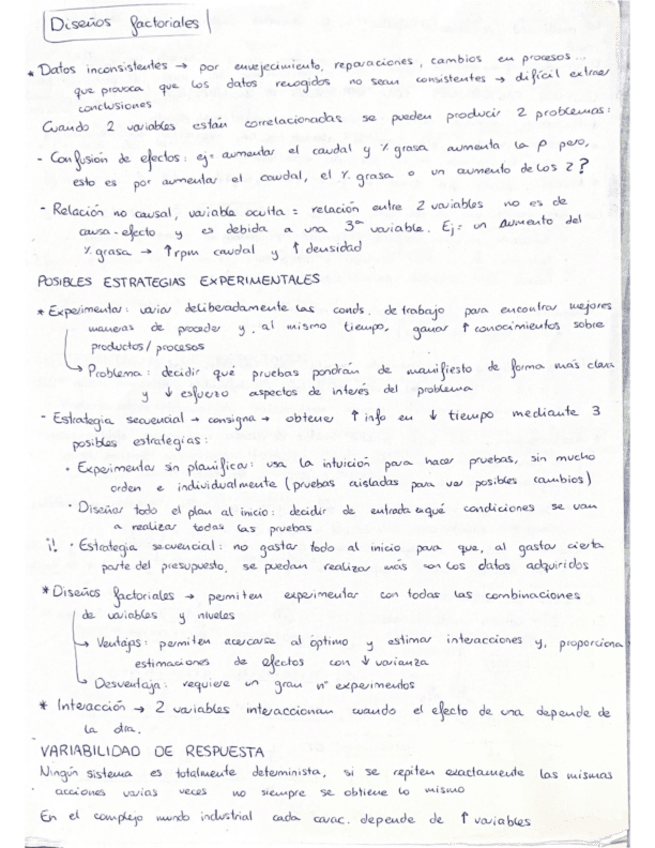 Diseños factoriales
* Datos inconsistentes → por envejecimiento, reparaciones, cambios en procesos...
que provoca que los datos recogidos no sean consistentes → difícil extraer
conclusiones
Cuando 2 variables están correlacionadas se pueden producir 2 problemas:
- Confusión de efectos: ej= aumentar el caudal y % grasa aumenta la ρ pero,
esto es por aumentar el caudal, el % grasa o un aumento de los 2?
- Relación no causal, variable oculta = relación entre 2 variables no es de
causa-efecto y es debida a una 3ª variable. Ej= un aumento del
% grasa → ↑rpm caudal y ↑ densidad
POSIBLES ESTRATEGIAS EXPERIMENTALES
* Experimentar: variar deliberadamente las conds. de trabajo para encontrar mejores
maneras de proceder y, al mismo tiempo, ganar ↑ conocimientos sobre
productos/procesos
↳ Problema: decidir qué pruebas pondrán de manifiesto de forma más clara
y ↓ esfuerzo aspectos de interés del problema
- Estrategia secuencial → consigna → obtener ↑ info en ↓ tiempo mediante 3
posibles estrategias:
· Experimentar sin planificar: usa la intuición para hacer pruebas, sin mucho
orden e individualmente (pruebas aisladas para ver posibles cambios)
· Diseñar todo el plan al inicio: decidir de entrada en qué condiciones se van
a realizar todas las pruebas
¡! · Estrategia secuencial: no gastar todo al inicio para que, al gastar cierta
parte del presupuesto, se puedan realizar más con los datos adquiridos
* Diseños factoriales → permiten experimentar con todas las combinaciones
de variables y niveles
↳ Ventajas: permiten acercarse al óptimo y estimar interacciones y, proporciona
estimaciones de efectos con ↓ varianza
↳ Desventaja: requiere un gran nº experimentos
* Interacción → 2 variables interaccionan cuando el efecto de una depende de
la otra.
VARIABILIDAD DE RESPUESTA
Ningún sistema es totalmente determinista, si se repiten exactamente las mismas
acciones varias veces no siempre se obtiene lo mismo
En el complejo mundo industrial cada carac. depende de ↑ variables